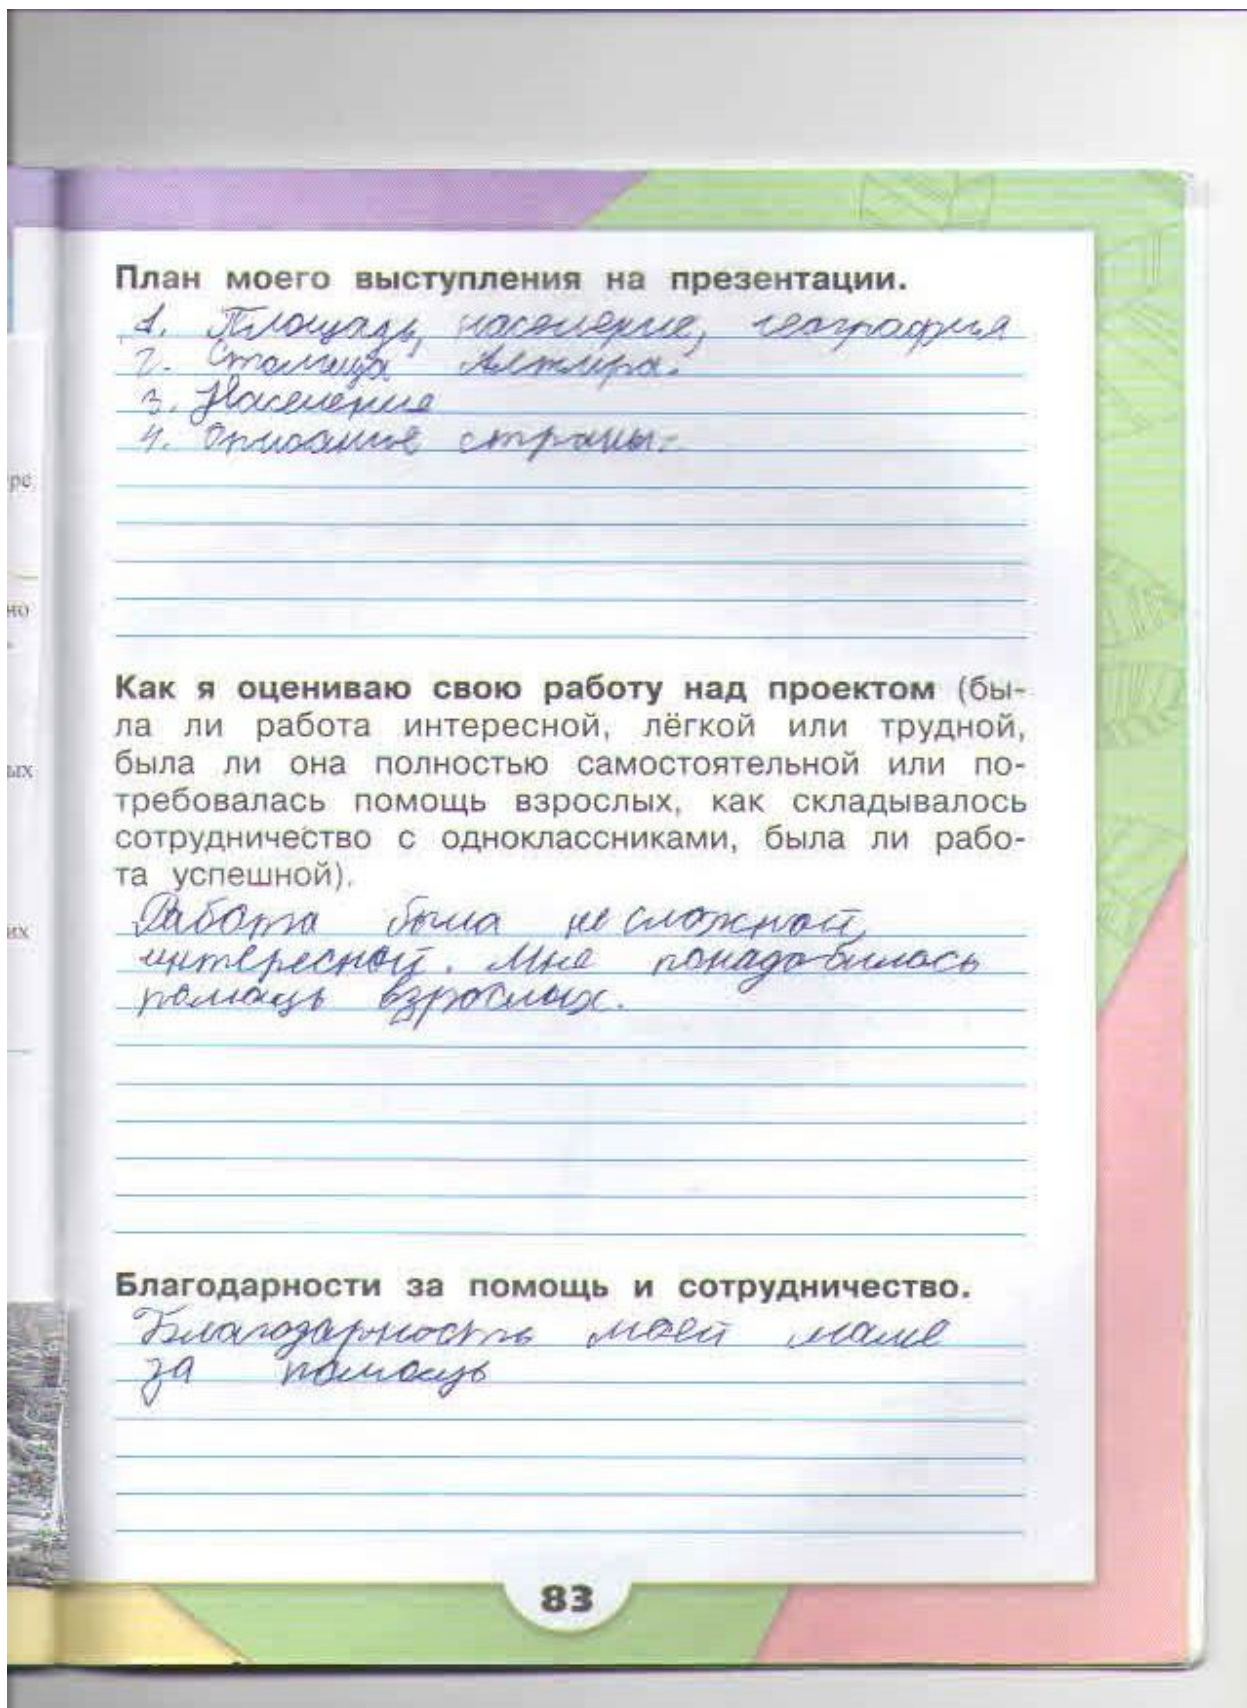 План моего выступления на презентации.
1. Площадь, население, география
2. Столица Алжира.
3. Население
4. Описание страны.
ре
но
ых
их
Как я оцениваю свою работу над проектом (бы-
ла ли работа интересной, лёгкой или трудной,
была ли она полностью самостоятельной или по-
требовалась помощь взрослых, как складывалось
сотрудничество с одноклассниками, была ли рабо-
та успешной).
Работа была не сложной,
интересной. Мне понадобилось
помощь взрослых.
Благодарности за помощь и сотрудничество.
Благодарность моей маме
за помощь
83